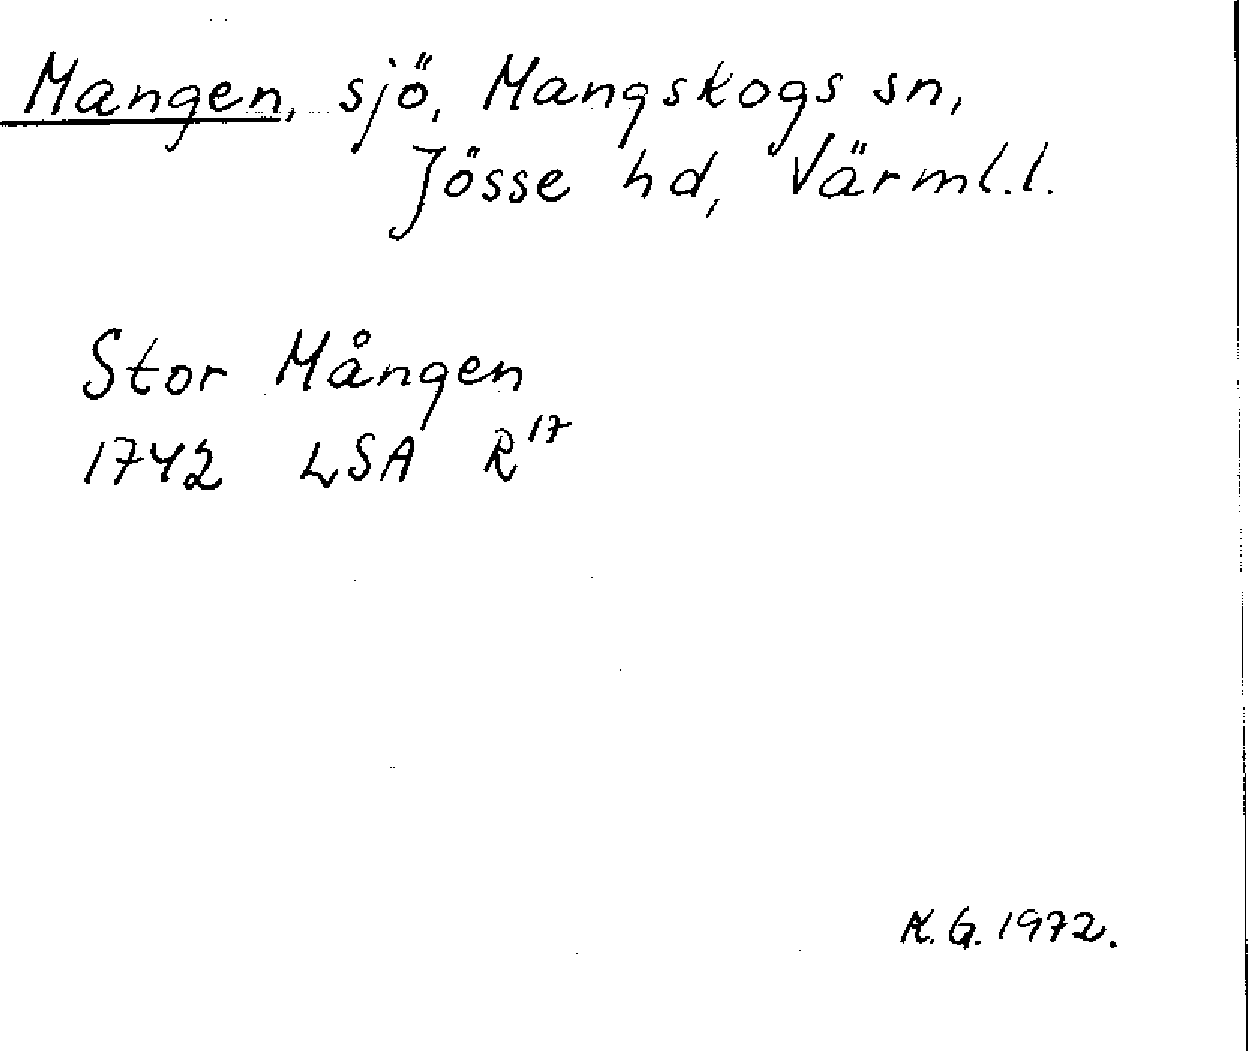 Mangen, sjö, Mangskogs sn,
Jösse hd, Värml.l.
Stor Mången
1742 LSA R17
K.G. 1972.